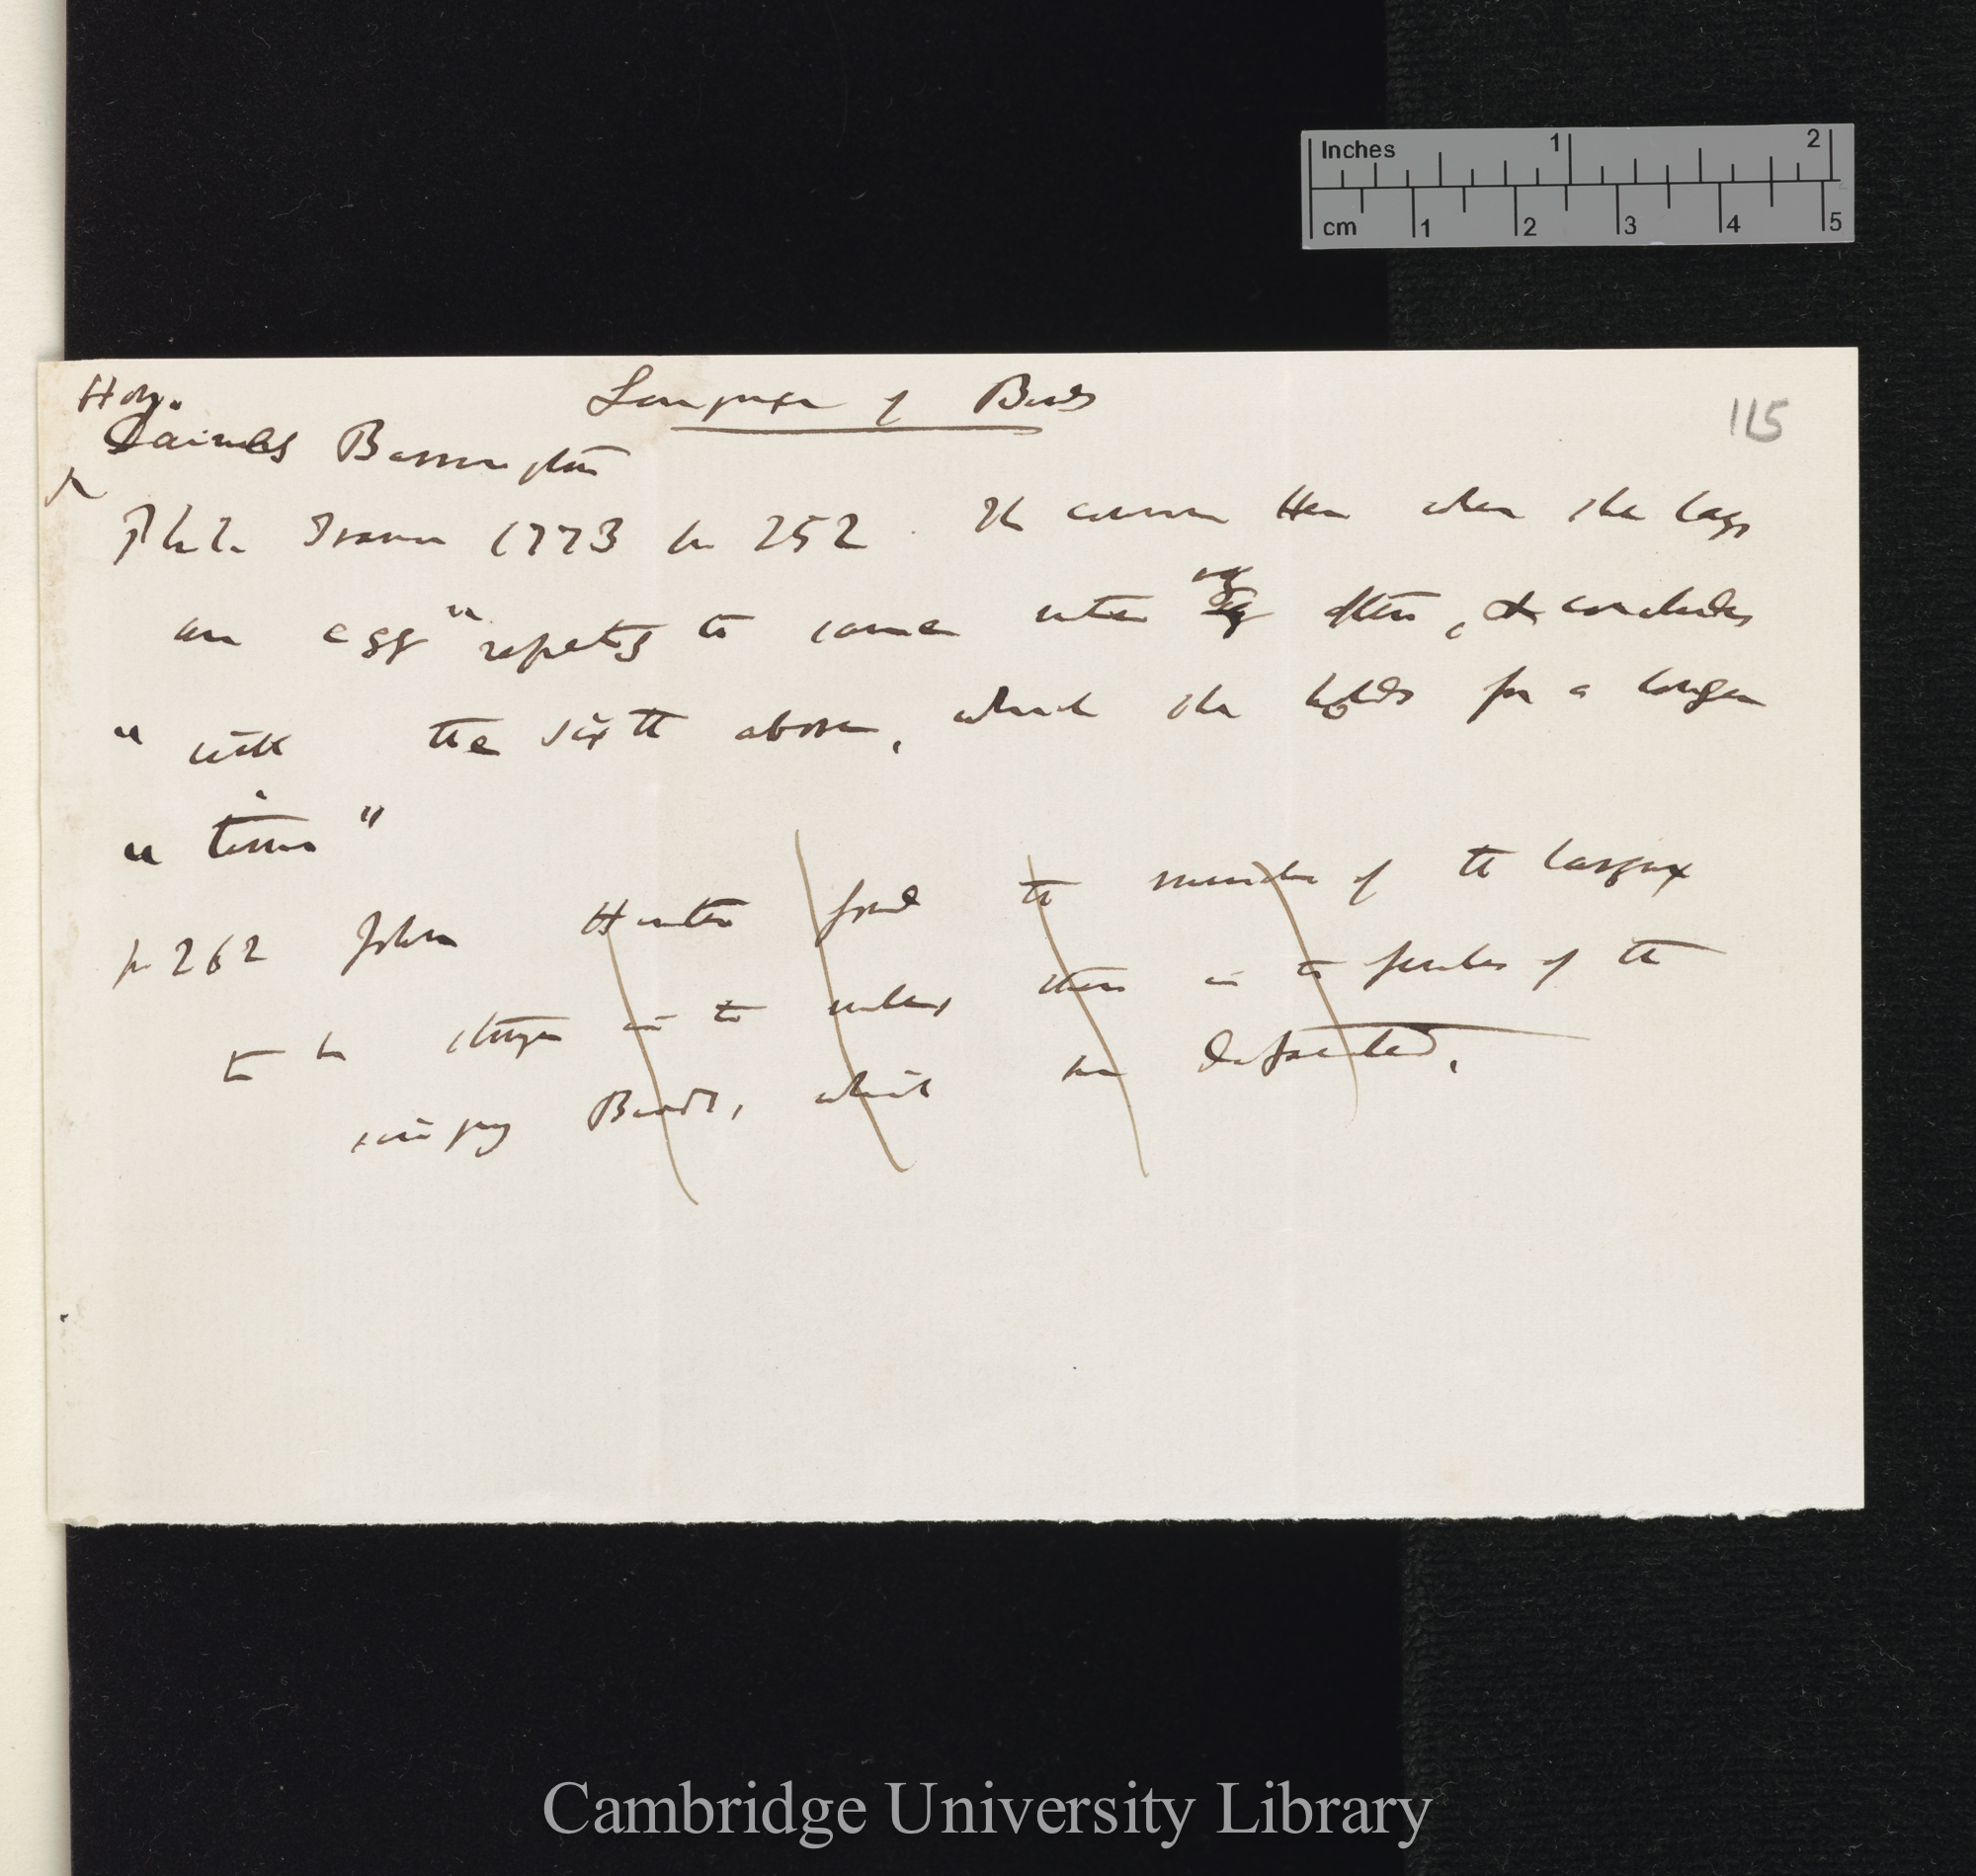 Inches 1 2
cm 1 2 3 4 5
Language of Birds
115
Hon.
Daines Barrington
Phil. Trans 1773 p. 252. The common Hen when she lays
an egg "repeats the same note often, & concludes
" with the sixth above, which she holds for a longer
" time "
p 262 John Hunter found the muscles of the larynx
to be stronger in the males than in the females of the
singing Birds, which he dissected.
Cambridge University Library